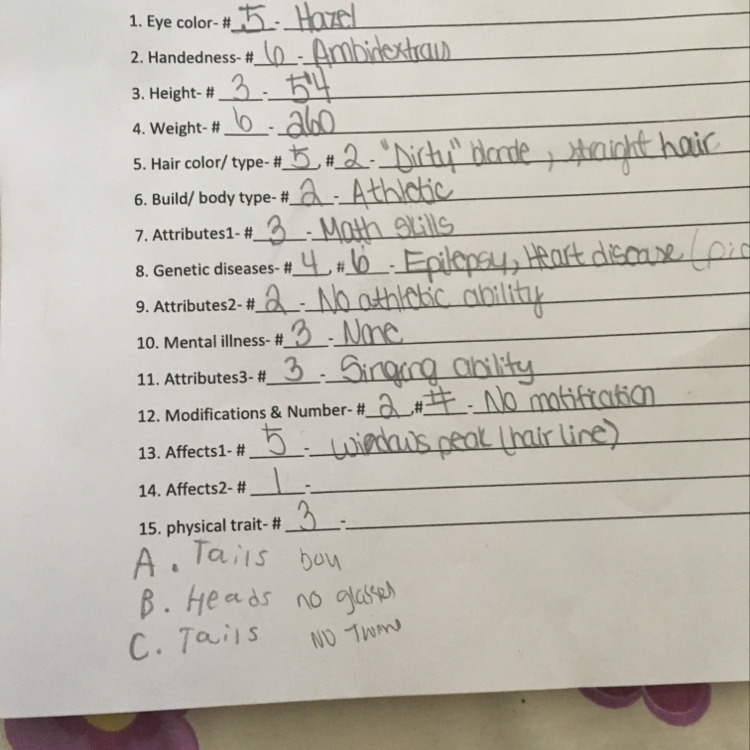 1. Eye color- # 5 - Hazel
2. Handedness- # 6 - Ambidextraus
3. Height- # 3 - 5'4
4. Weight- # 6 - 260
5. Hair color/ type- # 5, # 2 - "Dirty" blonde, straight hair
6. Build/ body type- # 2 - Athletic
7. Attributes1- # 3 - Math skills
8. Genetic diseases- # 4, # 6 - Epilepsy, Heart disease (
9. Attributes2- # 2 - No athletic ability
10. Mental illness- # 3 - None
11. Attributes3- # 3 - Singing ability
12. Modifications & Number- # 2, # # - No motification
13. Affects1- # 5 - widows peak (hair line)
14. Affects2- # 1 -
15. physical trait- # 3 -
A. Tails boy
B. Heads no glasses
C. Tails NO Twins